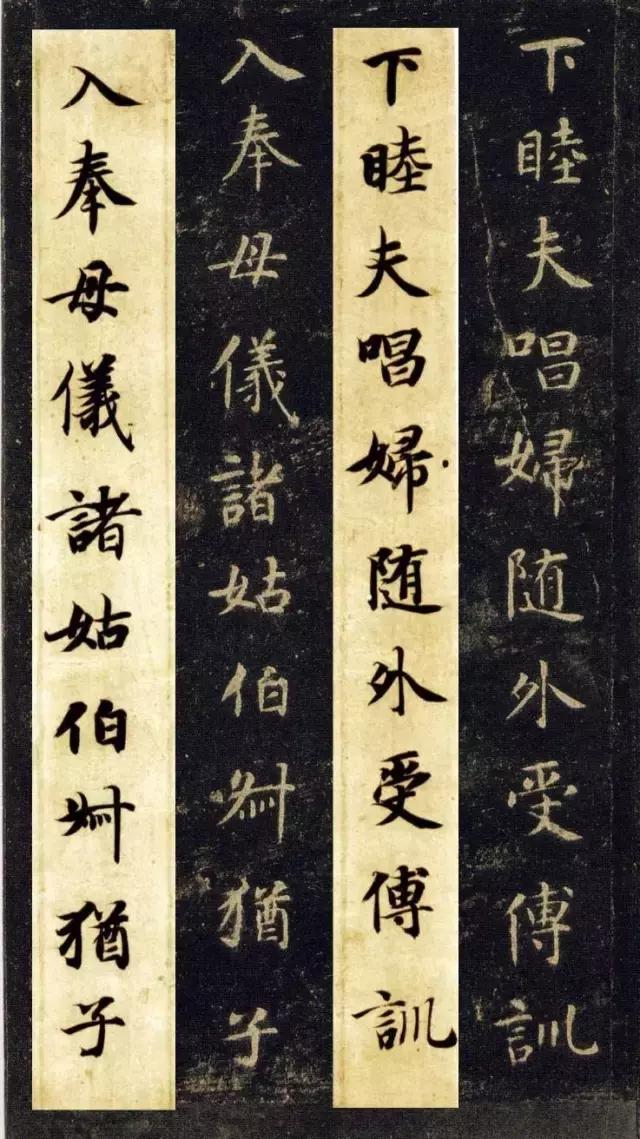 下睦夫唱婦随外受傅訓
下睦夫唱婦随外受傅訓
入奉母儀諸姑伯𠦑猶子
入奉母儀諸姑伯𠦑猶子